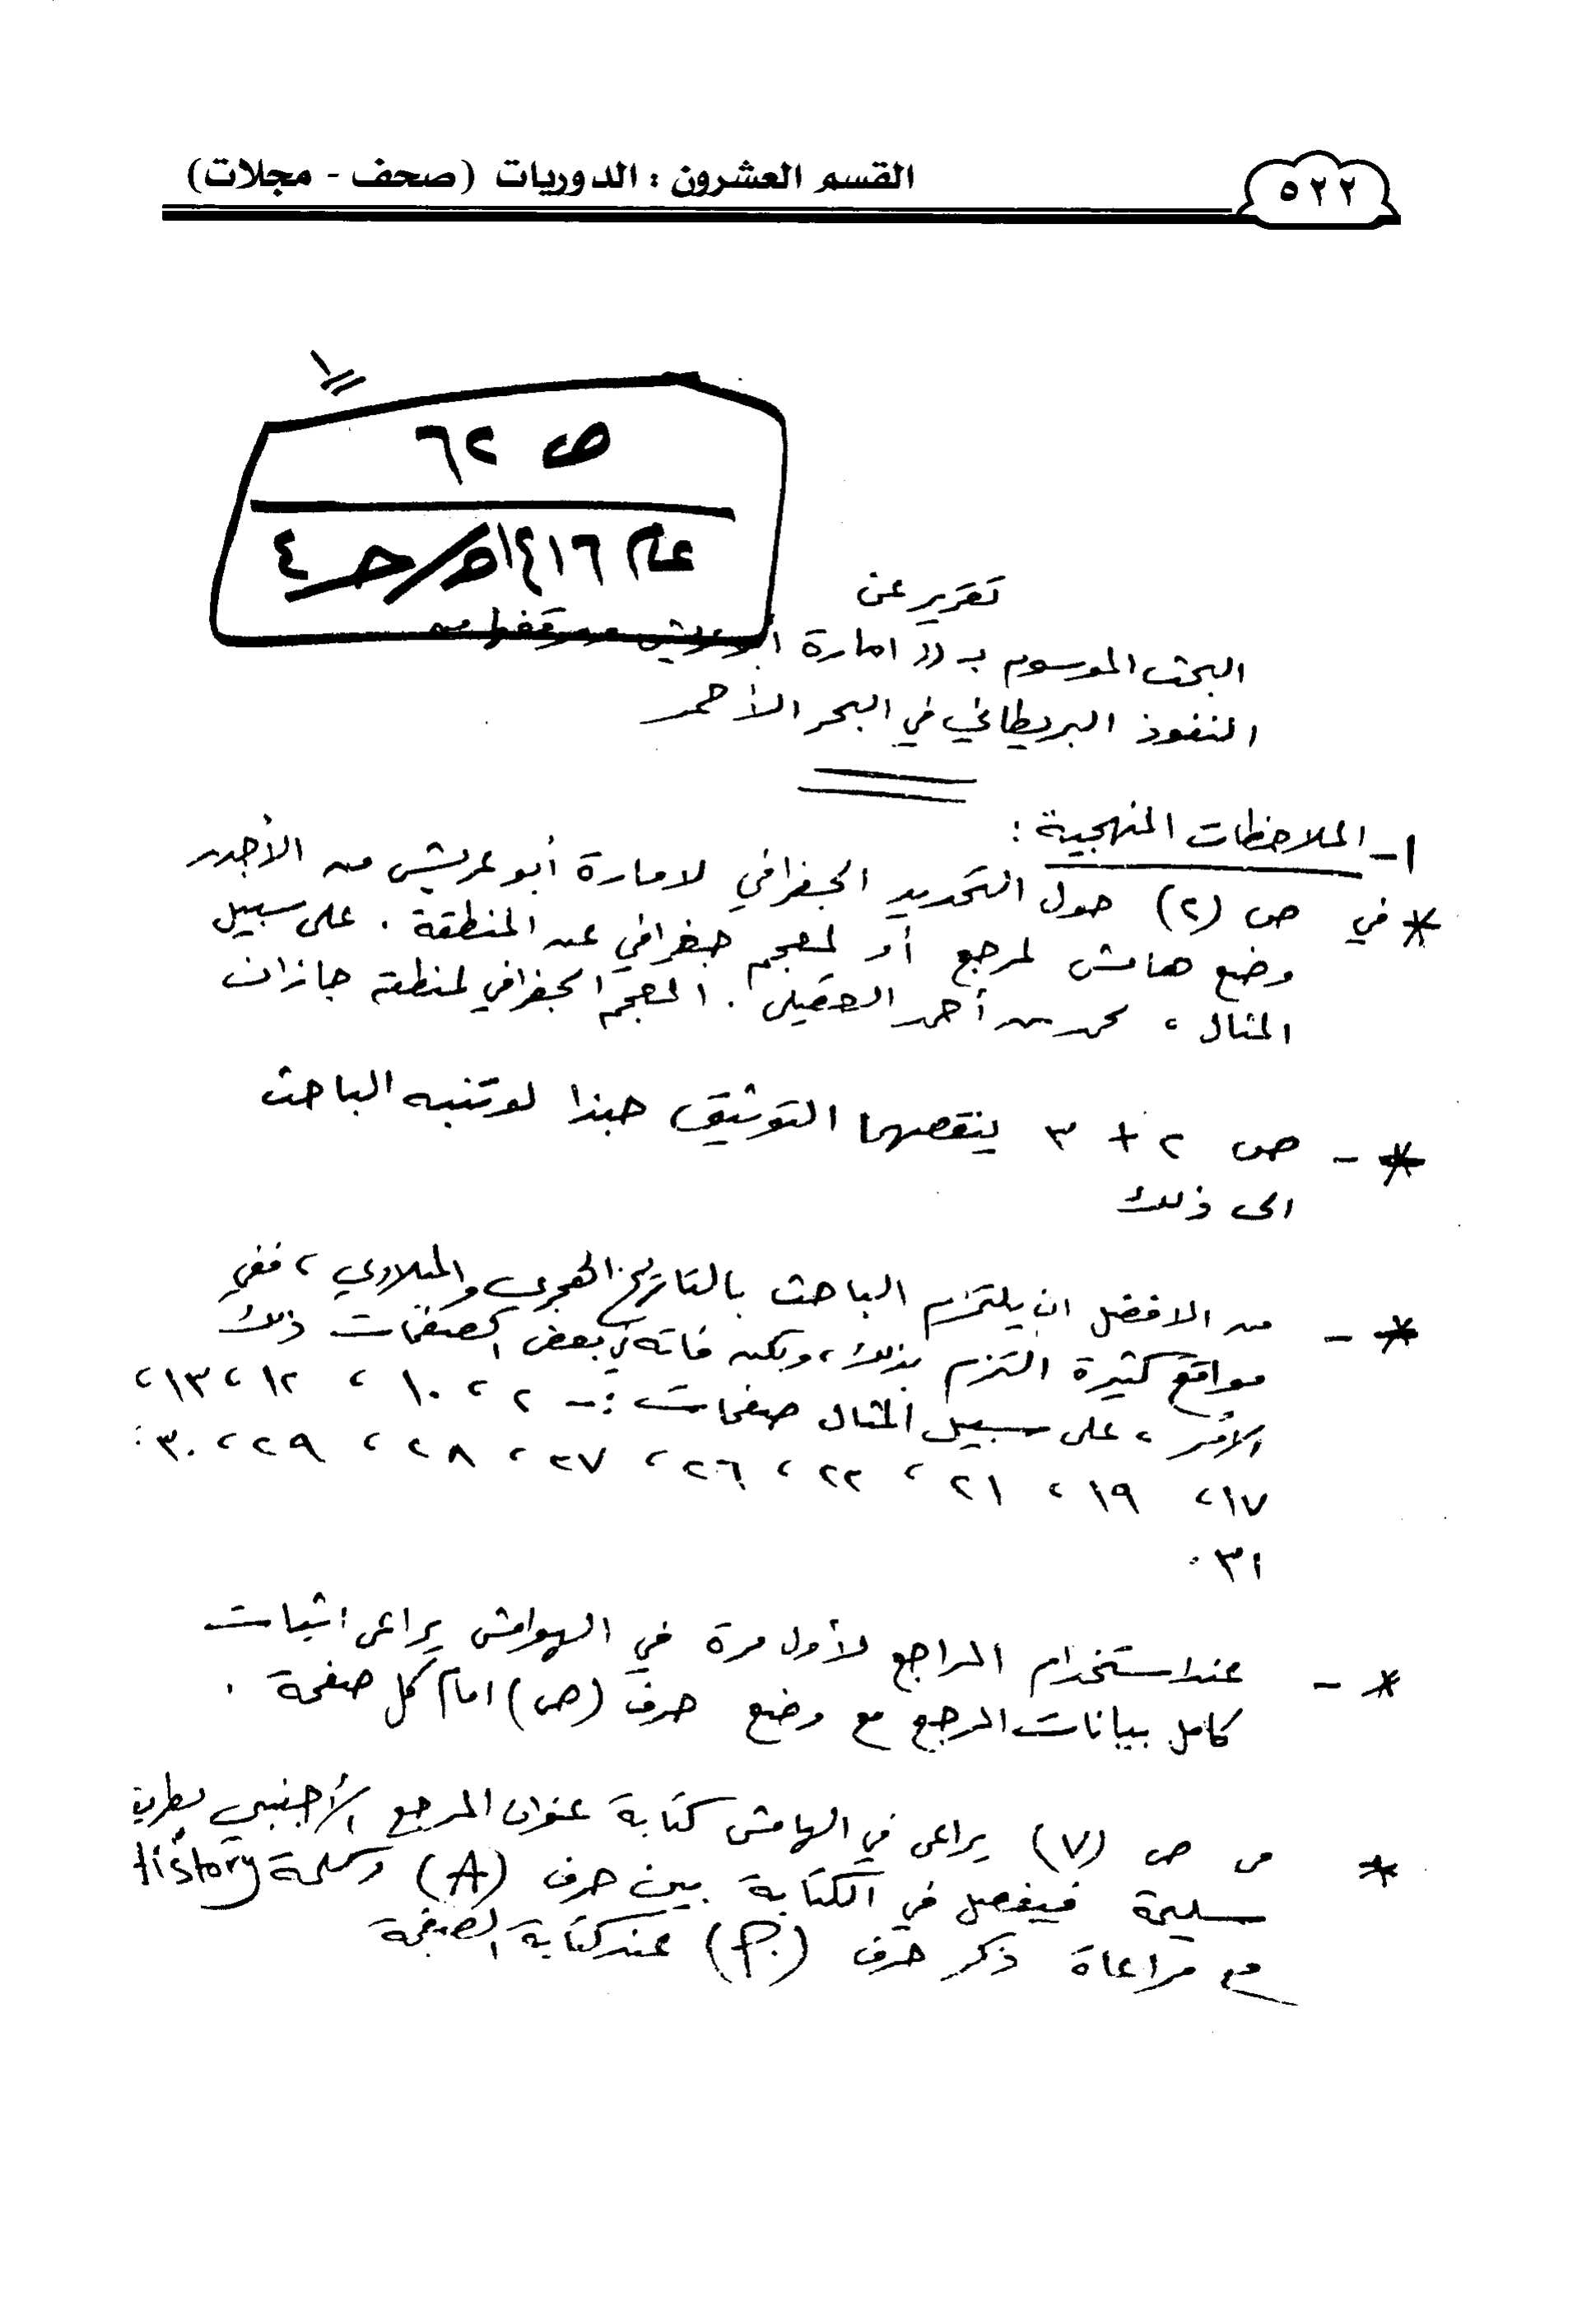 ٥٢٢
القسم العشرون : الدوريات (صحف - مجلات)
ص ٦٢
عام ١٤١٦هـ/حـ ٤
تقرير عن
البحث الموسوم بـ (( امارة أبو عريش وموقفها من
النفوذ البريطاني في البحر الأحمر
١- الملاحظات المنهجية :
* في ص (٢) حول التحديد الجغرافي لامارة أبو عريش من الأجدر
وضع هامش لمرجع أو لمعجم جغرافي عن المنطقة . على سبيل
المثال ، محمد بن أحمد العقيلي . المعجم الجغرافي لمنطقة جازان
* - ص ٢ + ٣ ينقصهما التوثيق حبذا لو تنبه الباحث
الى ذلك
* - من الافضل ان يلتزم الباحث بالتاريخ الهجري والميلادي ، ففي
مواقع كثيرة التزم بذلك ، ولكنه فاته في بعض الصفحات ذلك
الأمر ، على سبيل المثال صفحات :- ٢ ، ١٠ ، ١٢ ، ١٣ ،
١٧ ، ١٩ ، ٢١ ، ٢٢ ، ٢٦ ، ٢٧ ، ٢٨ ، ٢٩ ، ٣٠ :
٣١ .
* - عند استخدام المراجع لأول مرة في الهوامش يراعى اثبات
كامل بيانات المرجع مع وضع حرف (ص) امام كل صفحة .
* ص (٧) يراعى في الهامش كتابة عنوان المرجع الأجنبي بطريقة
سليمة فيفصل في الكتابة بين حرف (A) وكلمة History
مع مراعاة ذكر حرف (P.) عند كتابة الصفحة